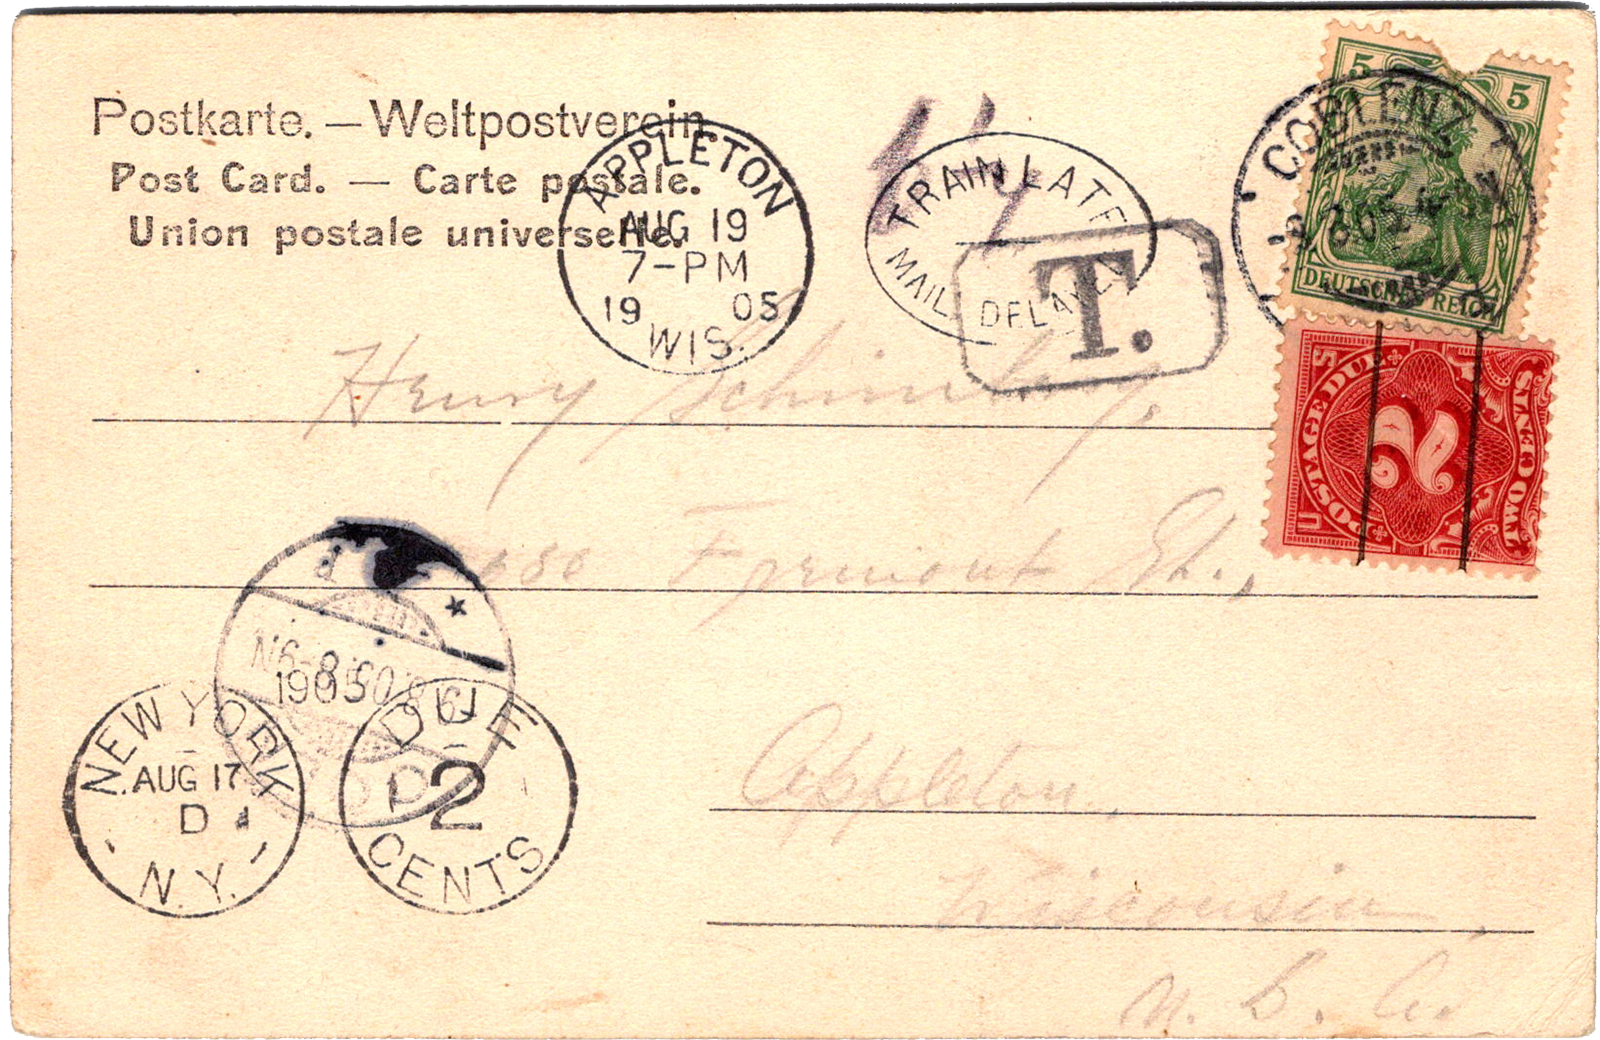 Postkarte. — Weltpostverein
Post Card. — Carte postale.
Union postale universelle.
APPLETON
AUG 19
7-PM
19 05
WIS.
TRAIN LATE
MAIL DELAYED
T.
COBLENZ
5 5
DEUTSCHES REICH
POSTAGE DUE
2
TWO CENTS
U S
Henry
Fremont St.,
Appleton,
Wisconsin
NEW YORK
AUG 17
D
N.Y.
1905
DUE
2
CENTS